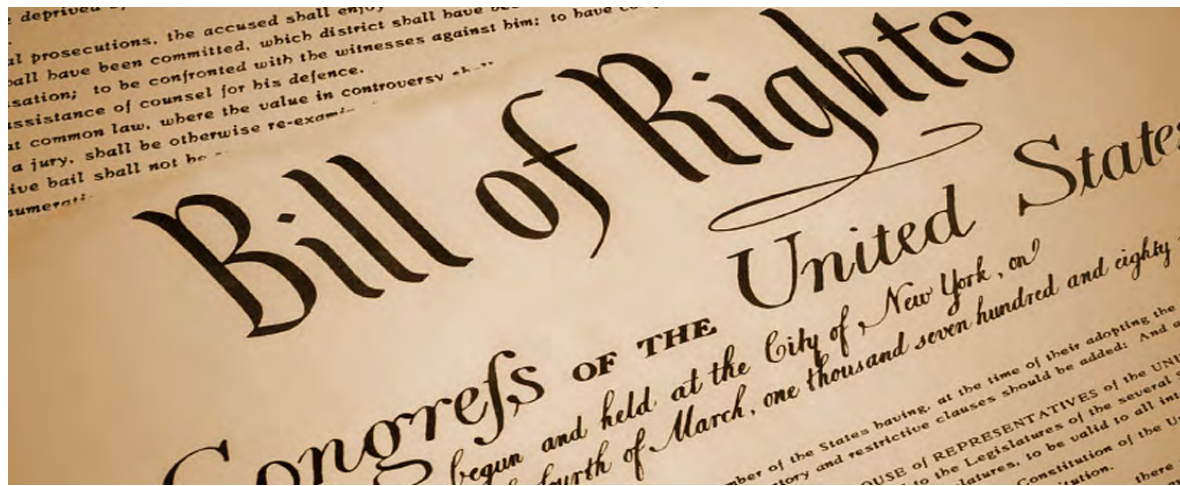 deprived
al prosecutions, the accused shall enjoy
all have been committed, which district shall have
sation; to be confronted with the witnesses against him; to have
assistance of counsel for his defence.
at common law, where the value in controversy
a jury, shall be otherwise re-exami
ive bail shall not be
numerati
Bill of Rights
Congreſs OF THE United States
begun and held at the City of New York, on
fourth of March, one thousand seven hundred and eighty
mber of the States having, at the time of their adopting the
tory and restrictive clauses should be added: And
OUSE of REPRESENTATIVES of the UNI
to the Legislatures of the several
latures, to be valid to all int
Constitution of the
tution.
there